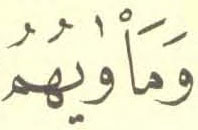 وَمَاْوٰيهُمُ